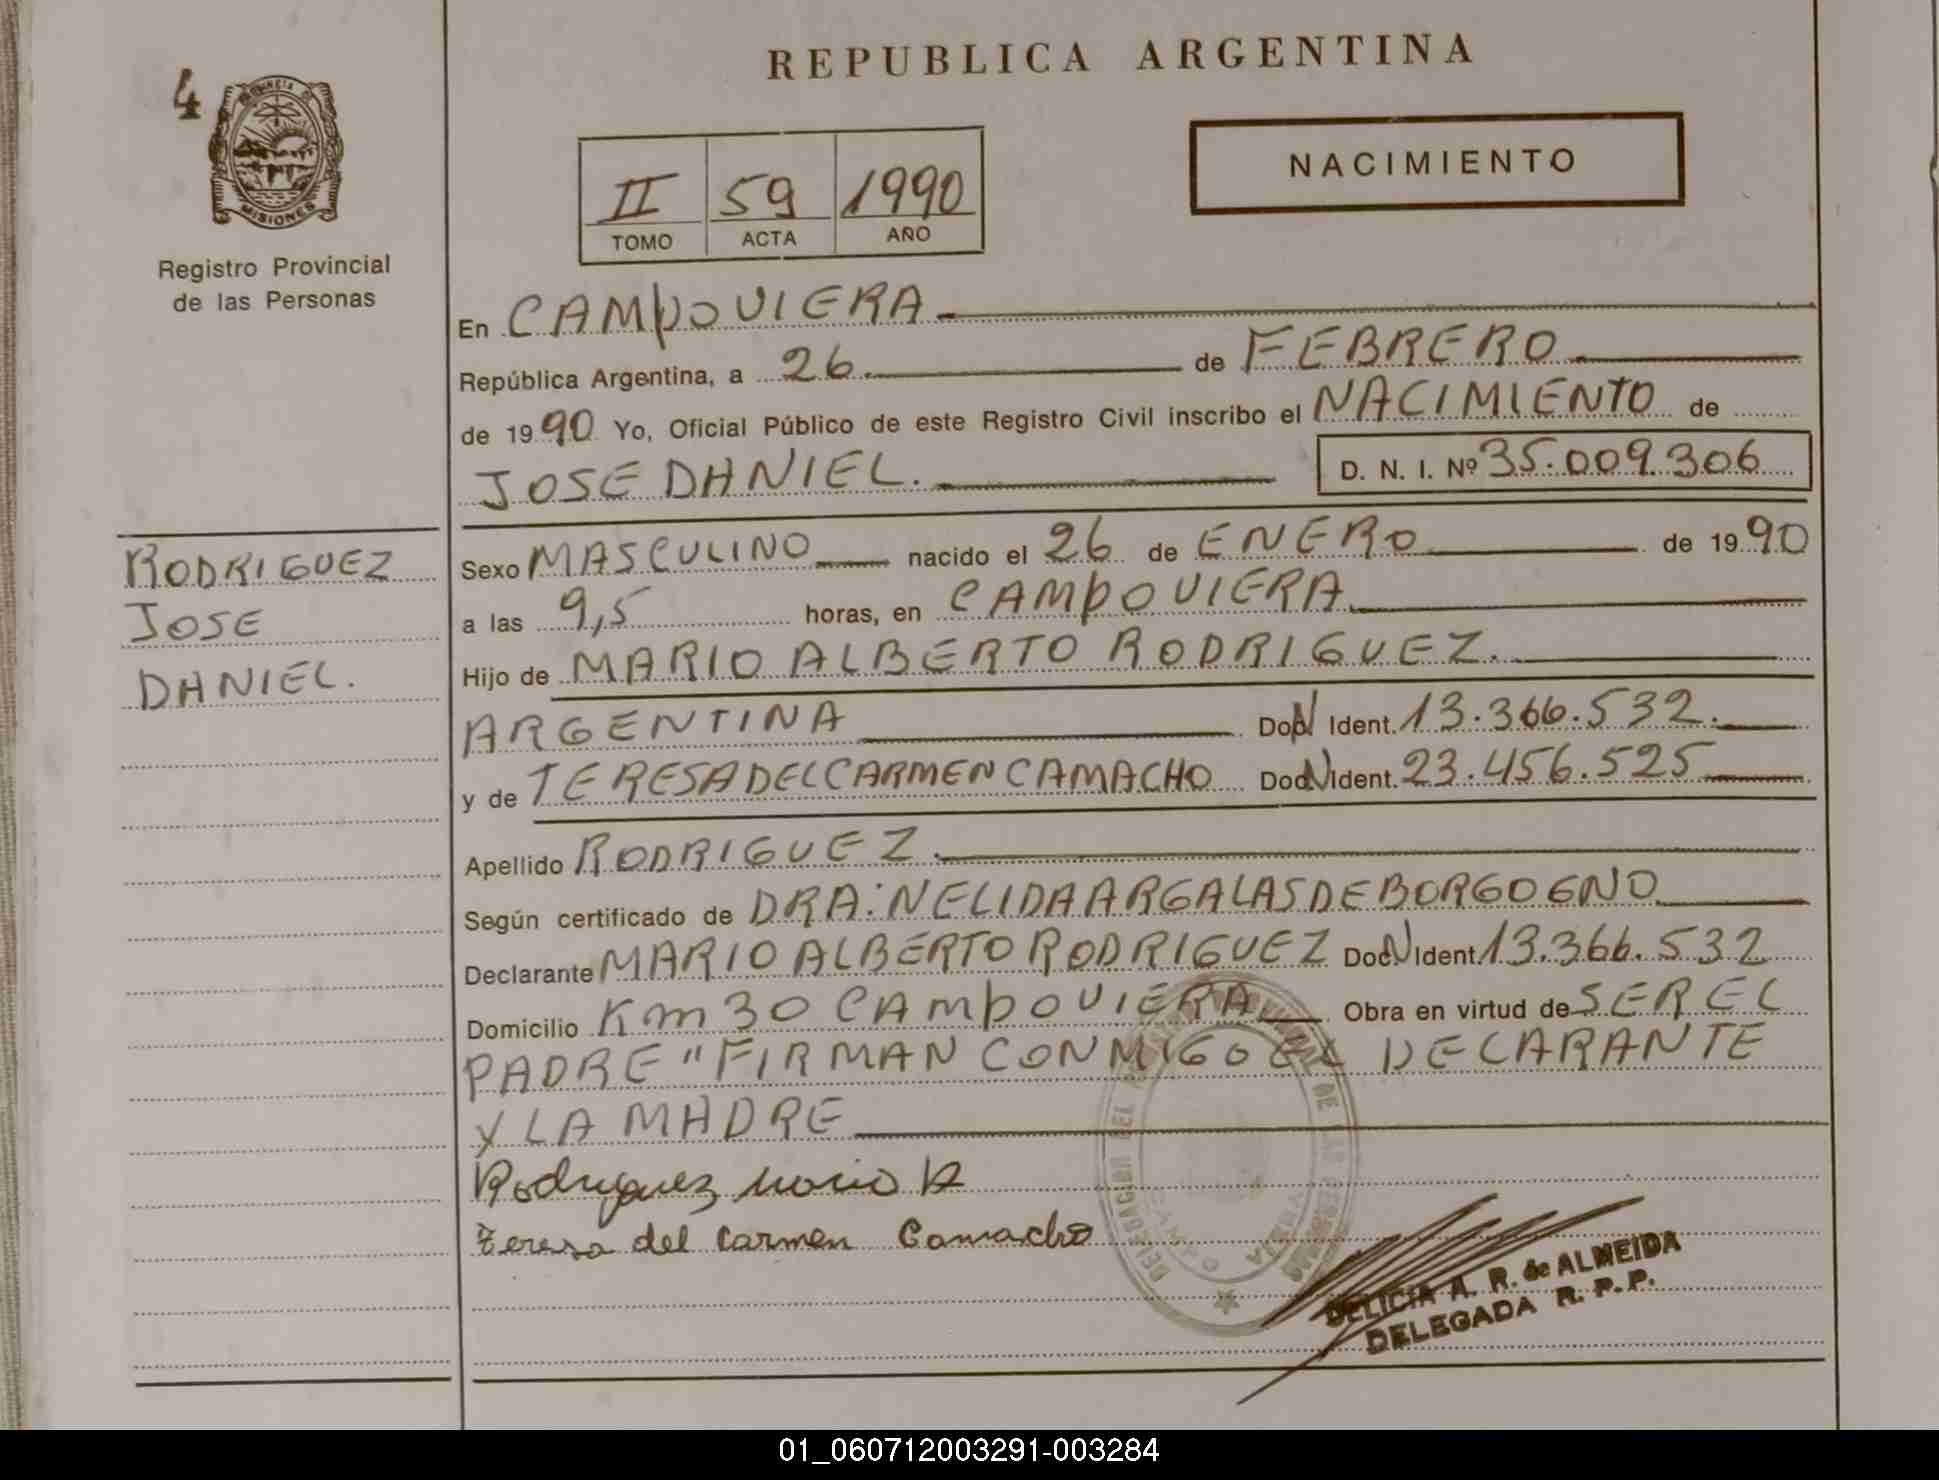 REPUBLICA ARGENTINA
4
PROVINCIA DE
MISIONES
Registro Provincial
de las Personas
NACIMIENTO
II 59 1990
TOMO ACTA AÑO
En CAMPO VIERA
República Argentina, a 26 de FEBRERO
de 1990 Yo, Oficial Público de este Registro Civil inscribo el NACIMIENTO de
JOSE DANIEL. D. N. I. Nº 35.009.306
RODRIGUEZ
JOSE
DANIEL.
Sexo MASCULINO nacido el 26 de ENERO de 1990
a las 9,5 horas, en CAMPO VIERA
Hijo de MARIO ALBERTO RODRIGUEZ.
ARGENTINA Doc N Ident. 13.366.532.
y de TERESA DEL CARMEN CAMACHO Doc N Ident. 23.456.525
Apellido RODRIGUEZ.
Según certificado de DRA: NELIDA ARGALAS DE BORGOGNO
Declarante MARIO ALBERTO RODRIGUEZ Doc N Ident 13.366.532
Domicilio Km 30 CAMPO VIERA Obra en virtud de SER EL
PADRE "FIRMAN CONMIGO EL DECLARANTE
Y LA MADRE
Rodriguez Mario A
Teresa del Carmen Camacho
DELEGACION DEL REGISTRO PROVINCIAL DE LAS PERSONAS
CAMPO VIERA
DELICIA A. R. de ALMEIDA
DELEGADA R. P. P.
01_060712003291-003284